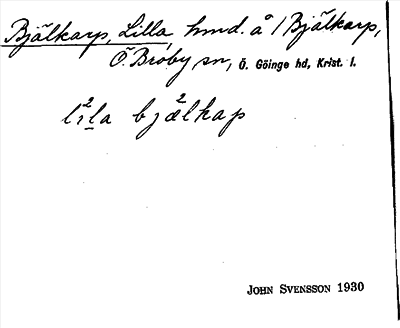 Bjälkarp, Lilla hmd. å / Bjälkarp,
Ö. Broby sn, Ö. Göinge hd, Krist. l.
li²la bjæ²lkap
JOHN SVENSSON 1930